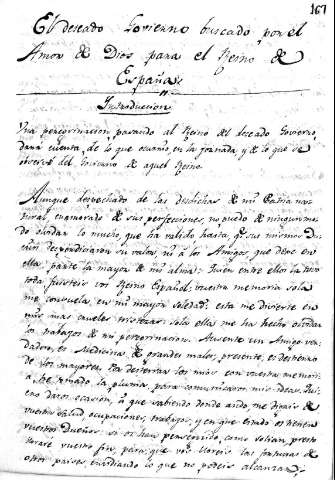 167
El deseado Govierno buscado por el
Amor de Dios para el Reino de
España
Introduccion
Una peregrinacion pasando al Reino del deseado Govierno,
dara cuenta, de lo que ocurrio, en la jornada, y de lo que se
observó del Govierno de aquel Reino.
Aunque desechado de las desdichas de mi Patria
enamorado de sus perfecciones, no puedo de ningun mo
do olvidar lo mucho, que ha valido hasta, q.e sus mismos
desperdiciaron su valor, ni a los Amigos que dexé en
ella parte la mayor de mi alma: Quien entre ellos la tuvo
toda, fuisteis vos Reino Español; vuestra memoria sola
me consuela, en mi mayor soledad; esta me divierte en
mis mas crueles tristezas: sola ella me ha hecho olvidar
los trabajos de mi peregrinacion. Ausente un Amigo ver
dadero, es Medicina de grandes males, presente, es destierro
de los mayores. Ya desterrar los mios con vuestra memoria
He tomado la pluma, para comunicaros mis ideas.
daros ocasion, á que sabiendo donde ando, me digais de
vuestra salud, ocupaciones, trabajos, y en que estado os tienen
vuestros Dueños. si os han pervertido, como solian, presto
lloraré vuestro fin, para que vos lloreis las fortunas de
otros paises, envidiando lo que no podeis alcanzar.